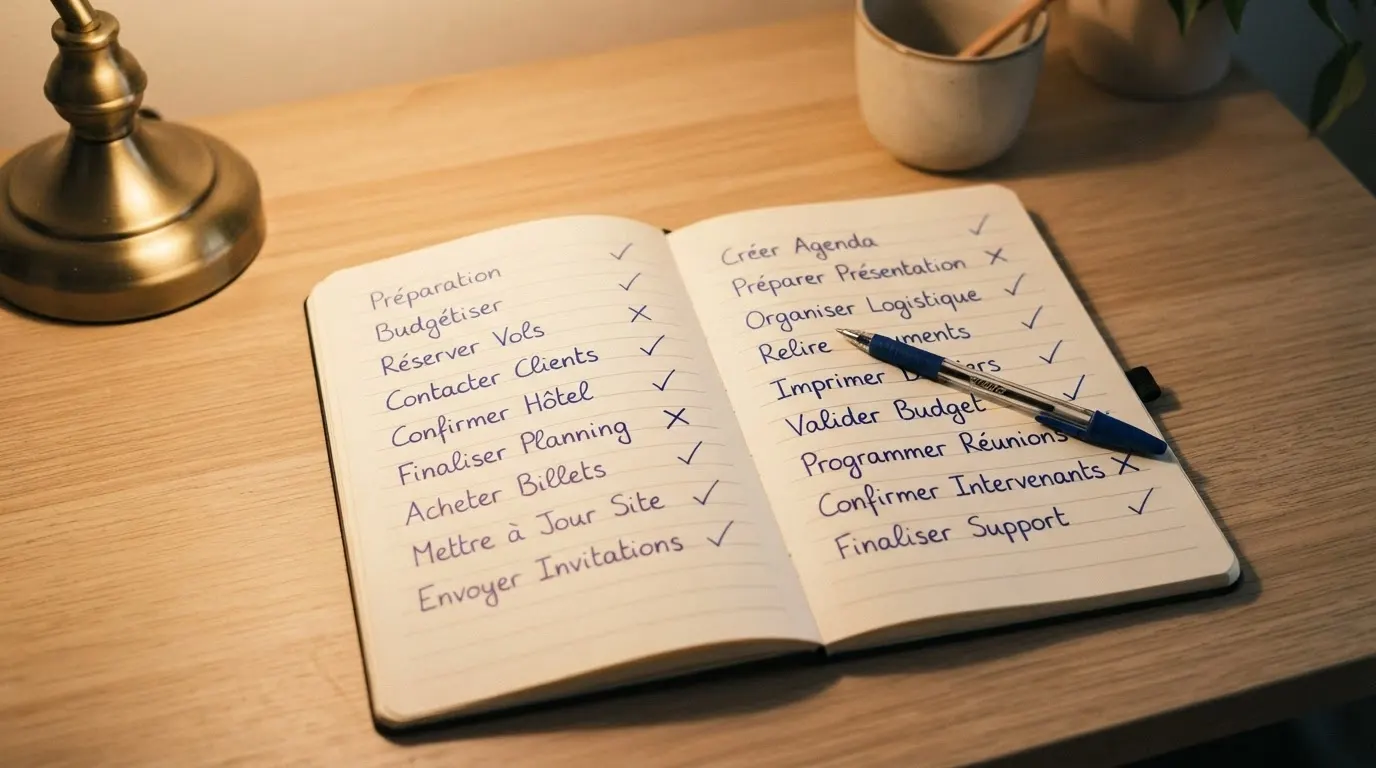 Préparation ✓
Budgétiser ✓
Réserver Vols ✗
Contacter Clients ✓
Confirmer Hôtel ✓
Finaliser Planning ✗
Acheter Billets ✓
Mettre à Jour Site ✓
Envoyer Invitations ✓
Créer Agenda ✓
Préparer Présentation ✗
Organiser Logistique ✓
Relire ✓
Imprimer ✓
Valider Budget ✓
Programmer Réunions
Confirmer Intervenants ✗
Finaliser Support ✓